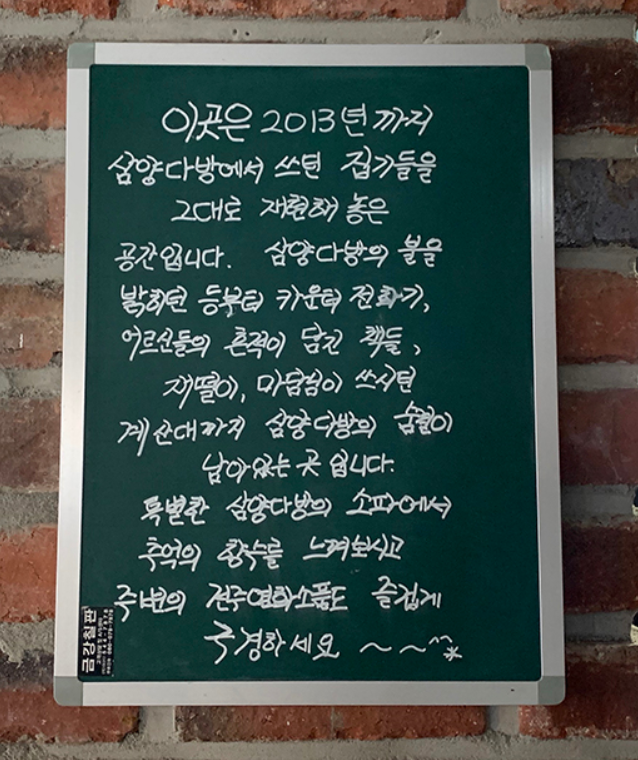 이곳은 2013년까지
삼양다방에서 쓰던 집기들을
그대로 재현해 놓은
공간입니다. 삼양다방의 불을
밝히던 등부터 카운터 전화기,
어르신들의 흔적이 담긴 책들,
재떨이, 마담님이 쓰시던
계산대까지 삼양다방의 숨결이
남아있는 곳 입니다.
특별한 삼양다방의 소파에서
추억의 향수를 느껴보시고
주변의 전주영화소품도 즐겁게
구경하세요 ~ ~ ^^*
금강칠판